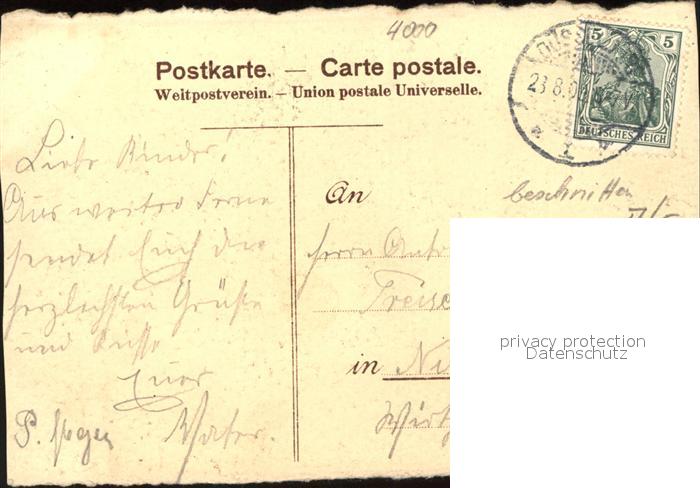 4000
Postkarte. — Carte postale.
Weltpostverein. — Union postale Universelle.
5 5
DEUTSCHES REICH
23.8.0
Liebe Kinder!
Aus weiter Ferne
sendet Euch die
herzlichsten Grüße
und Küsse
Euer
Vater.
An
beschnitten
Herrn
in Ni
privacy protection
Datenschutz